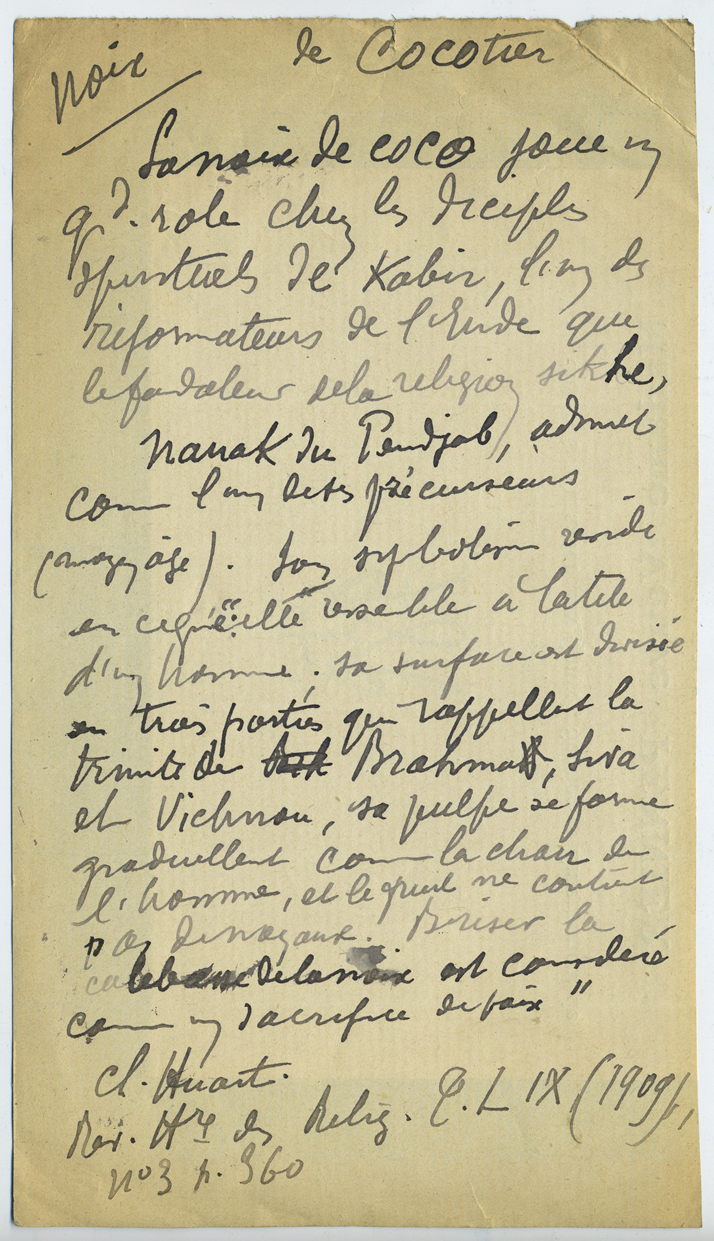 Noix de Cocotier
La noix de coco joue un
gd. role chez les disciples
spirituels de Kabir, l'un des
réformateurs de l'Inde que
le fondateur de la religion sikhe,
Nanak du Pendjab, admet
comme l'un de ses précurseurs
(moyen âge). Son symbolisme réside
en ce qu'"elle" ressemble à la tête
d'un homme ; sa surface est divisée
en trois parties qui rappellent la
trinité de Brahma, Siva
et Vichnou, sa pulpe se forme
graduellent comme la chair de
l'homme, et le fruit ne contient
pas de noyaux. Briser la
calebasse de la noix est considéré
comme un sacrifice de paix"
Cl. Huart.
Rev. Hre des Relig. T. L IX (1909),
no 3 p. 360